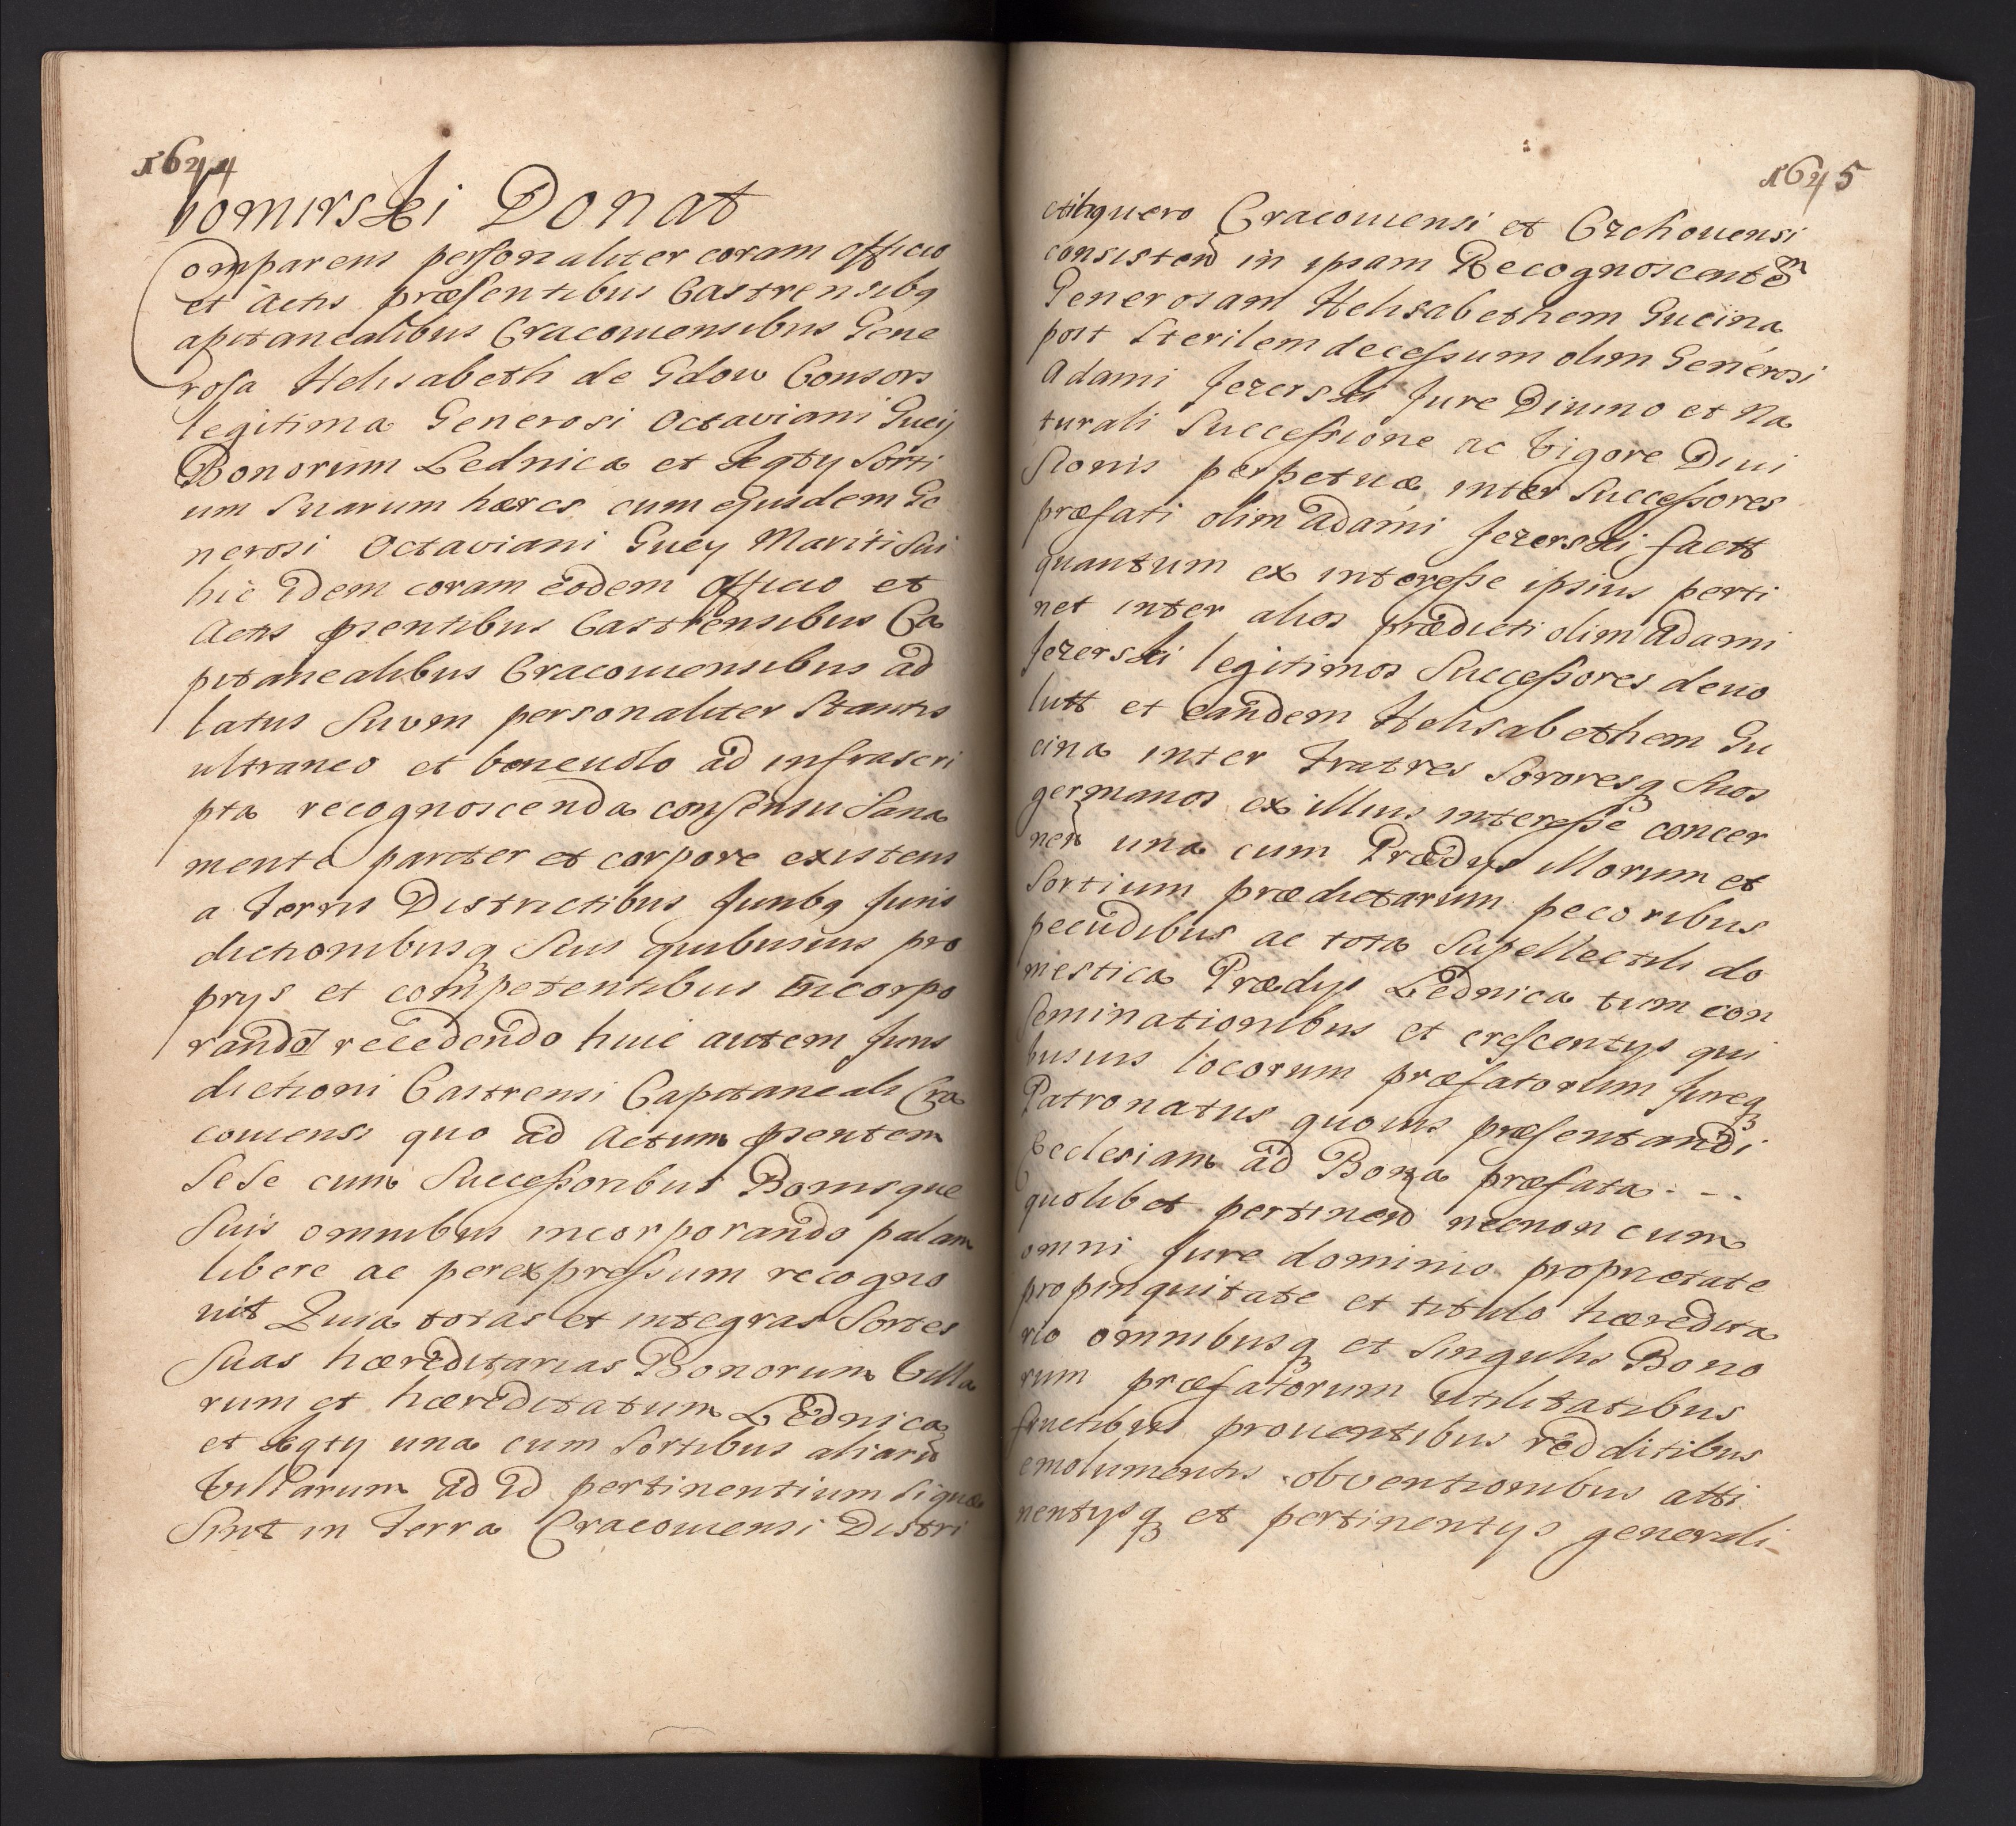 1644
Komirski Donat
Comparens personaliter coram Officio
et Actis præsentibus Castrensibq
apitanealibus Cracouiensibus Gene
rosa Helisabeth de Gdow Consors
legitima Generosi Octaviani Gucij
Bonorum Lednica et Lęgty Sorti
um Suarum hæres cum ejusdem Ge
nerosi Octaviani Gucy Mariti Sui
hic idem coram eodem Officio et
Actis pֿsentibus Castrensibus Ca
pitanealibus Cracouiensibus ad
latus Suum personaliter Stantis
ultraneo et beneuolo ad infrascri
pta recognoscenda consensu Sana
mente pariter et corpore existens
a Terris Districtibus Juribq Juris
dictionibusq Suis quibusuis pro
prijs et competentibus incorpo
rando recedendo huic autem Juris
dictioni Castrensi Capitaneali Cra
couiensi quo ad Actum pֿsentem
Sese cum Successoribus Bonisque
Suis omnibus incorporando palam
libere ac per expressum recogno
uit Quia totas et integras Sortes
Suas hæreditarias Bonorum Villa
rum et hæreditatum Lednica
et Lęgty una cum Sortibus aliarū
Villarum ad id pertinentium Siquæ
Sint in Terra Cracouiensi Distri
1645
ctibquero Cracouiensi et Czchouensi
consisten in ipsam Recognoscentem
Generosam Helisabethem Gucina
post Sterilem decessum olim Generosi
Adami Jezerski Jure Diuino et Na
turali Successione ac Vigore Diui
sionis perpetuæ inter Successores
præfati olim Adami Jezerski factt
quantum ex interesse ipsius perti
net inter alios prædicti olim Adami
Jezerski legitimos Successores deuo
lutt et eandem Helisabethem Gu
cina inter Fratres Sororesq Suos
germanos ex illius interesse concer
nen una cum Prædijs Illorum et
Sortium prædictarum pecoribus
pecudibus ac tota Supellectili do
mestica Prædijs Lednica tum con
seminationibus et crescentijs qui
busuis locorum præfatorum Jureq
Patronatus quouis præsentandi
Ecclesiam ad Bona præfata - - -
quolibet pertinen necnon cum
omni Jure dominio proprietate
propinquitate et titulo hæredita
rio omnibusq et Singulis Bono
rum præfatorum utilitatibus
fructibus prouentibus redditibus
emolumentis obventionibus atti
nentijsq et pertinentijs generali-